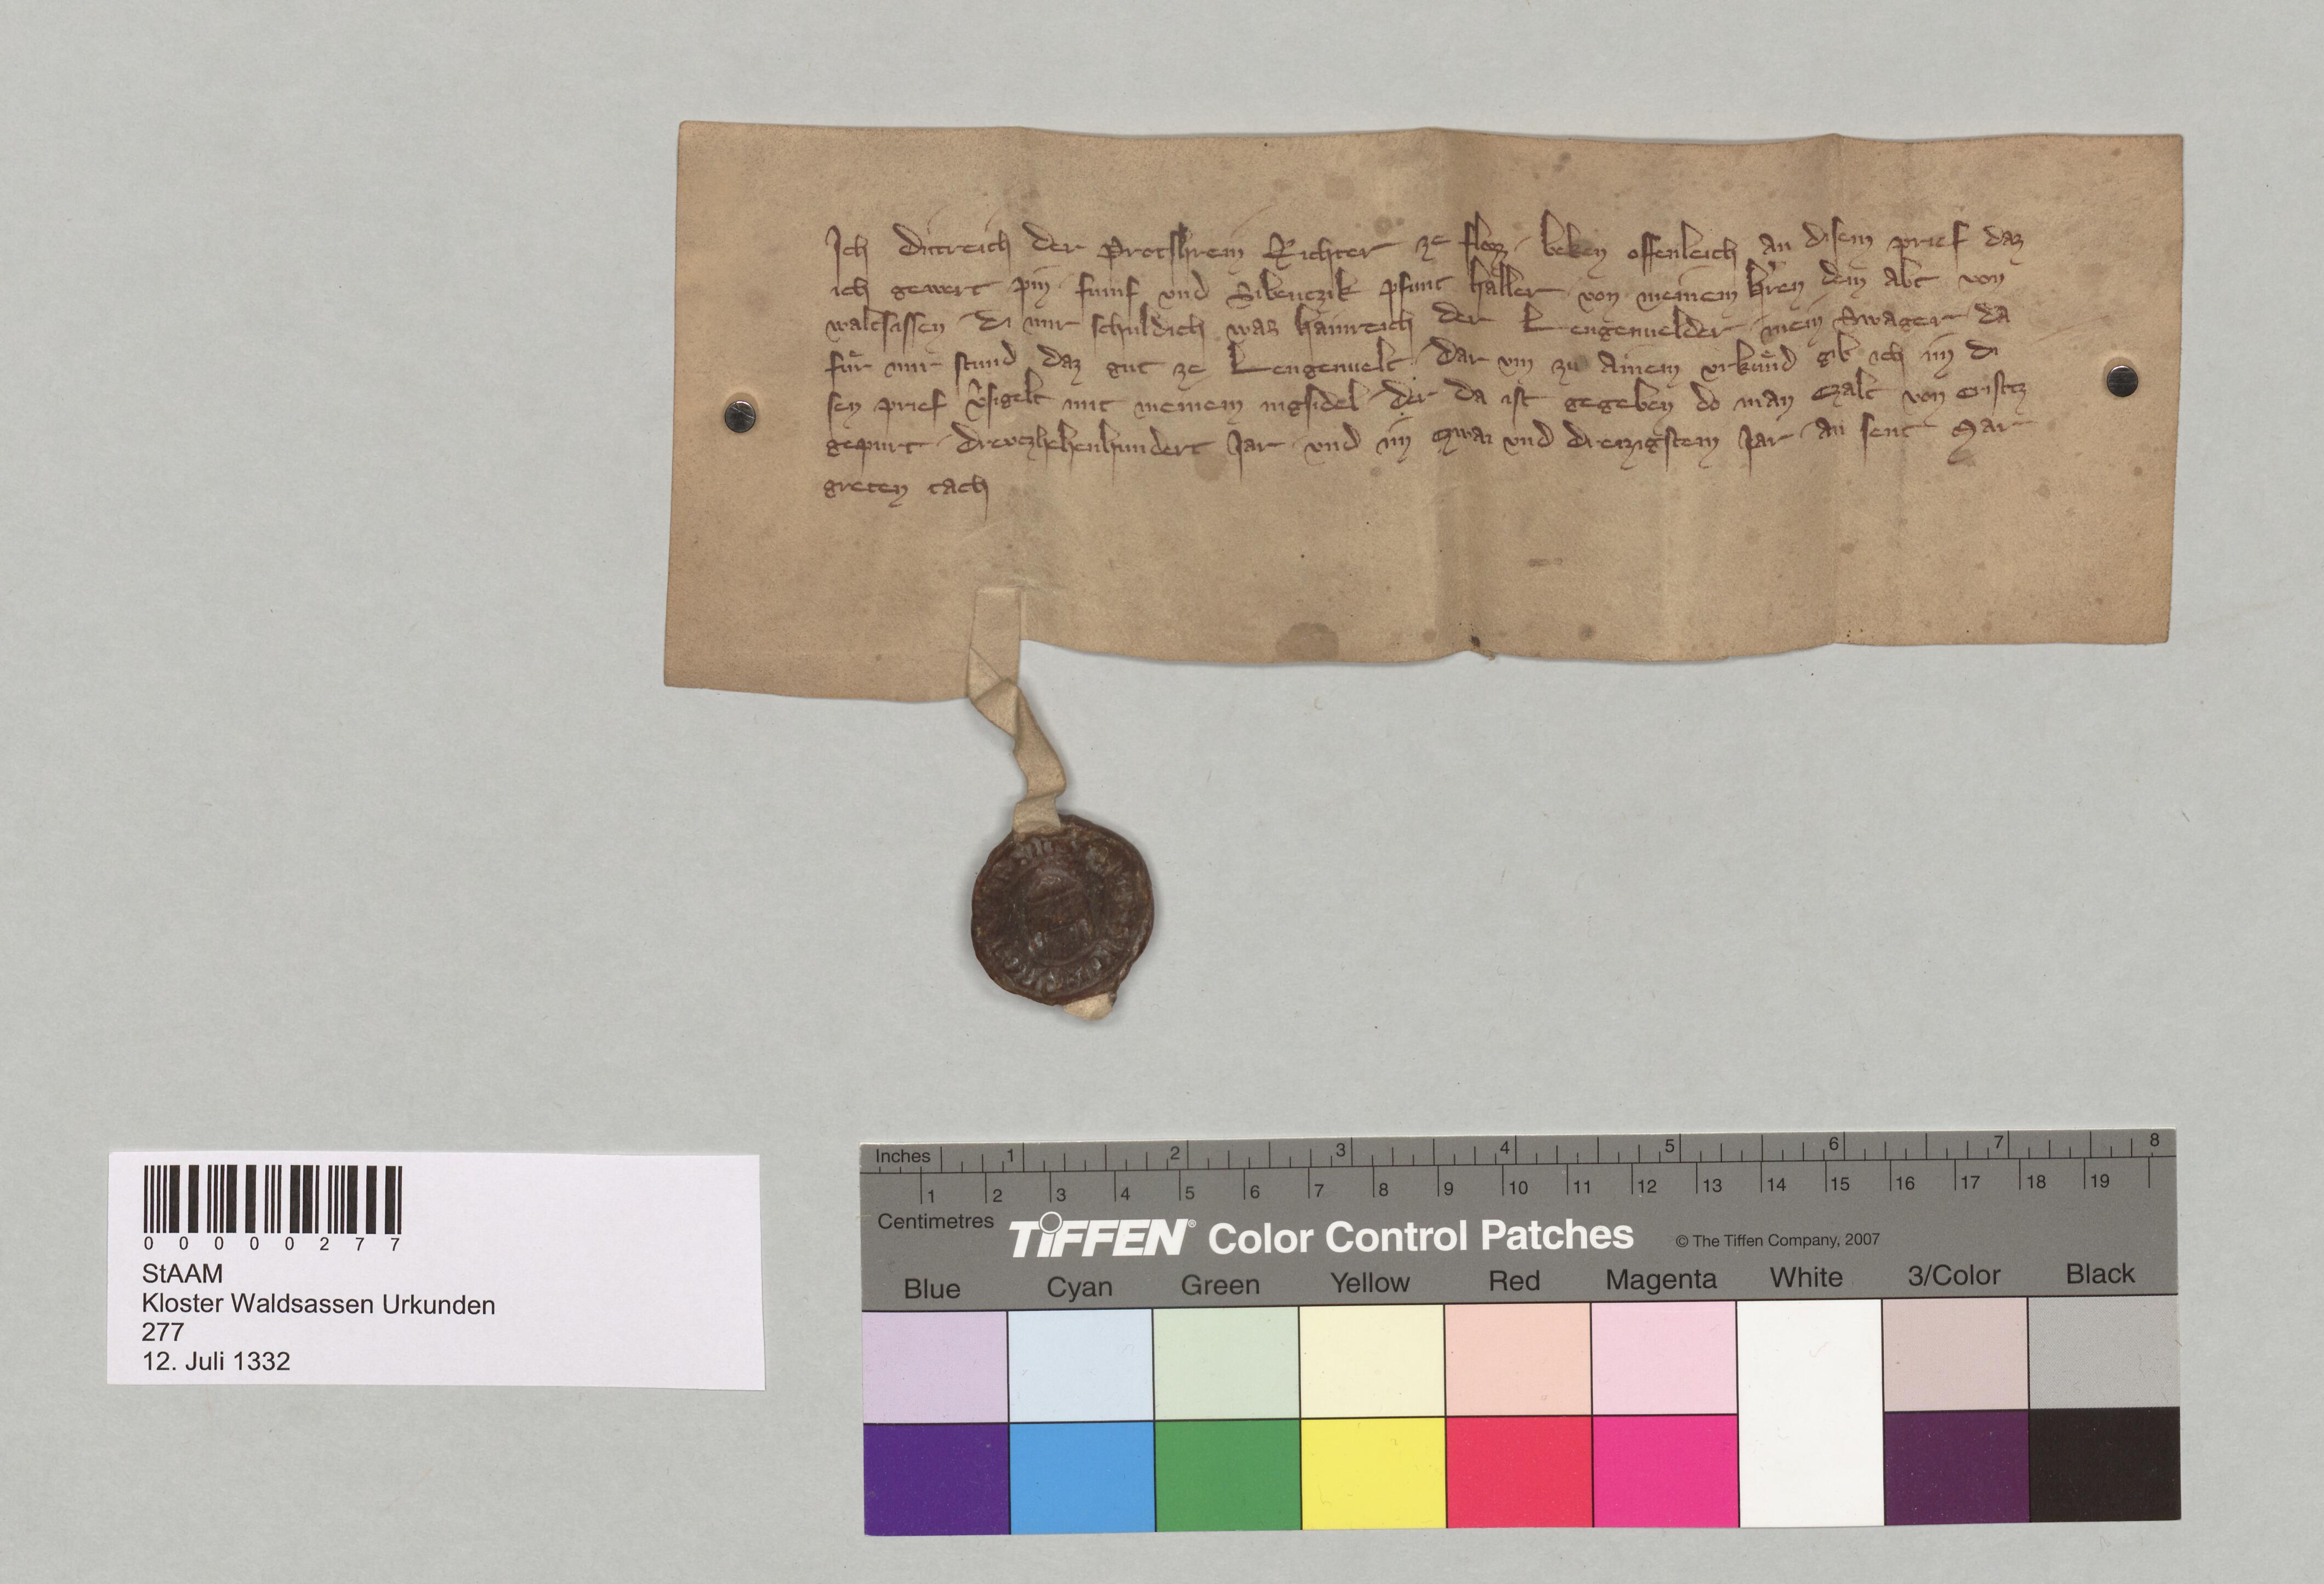 Ich Ditreich der Protshrein Richter ze floez beken offenleich an disem prief daz
ich gewert pin fumf vnd Sibentzik pfunt haller von meinem hren dem abt von
waltsassen di mir schuldich waz hainreich der Lengenuelder mein Swager da
fuͤr mir stund daz gut ze Lengenuelt dar vm zu ainem vrkuͤnd gib ich im di
sen prief v̓sigelt mit meinem insidel der da ist gegeben do man Czalt von Cristz
gepurt drevtzhehenhundert Jar vnd im Czwai vnd dreizigstem Jar an sent Mar
greten tach
0 0 0 0 0 2 7 7
StAAM
Kloster Waldsassen Urkunden
277
12. Juli 1332
Inches 1 2 3 4 5 6 7 8
1 2 3 4 5 6 7 8 9 10 11 12 13 14 15 16 17 18 19
Centimetres
TIFFEN® Color Control Patches © The Tiffen Company, 2007
Blue Cyan Green Yellow Red Magenta White 3/Color Black